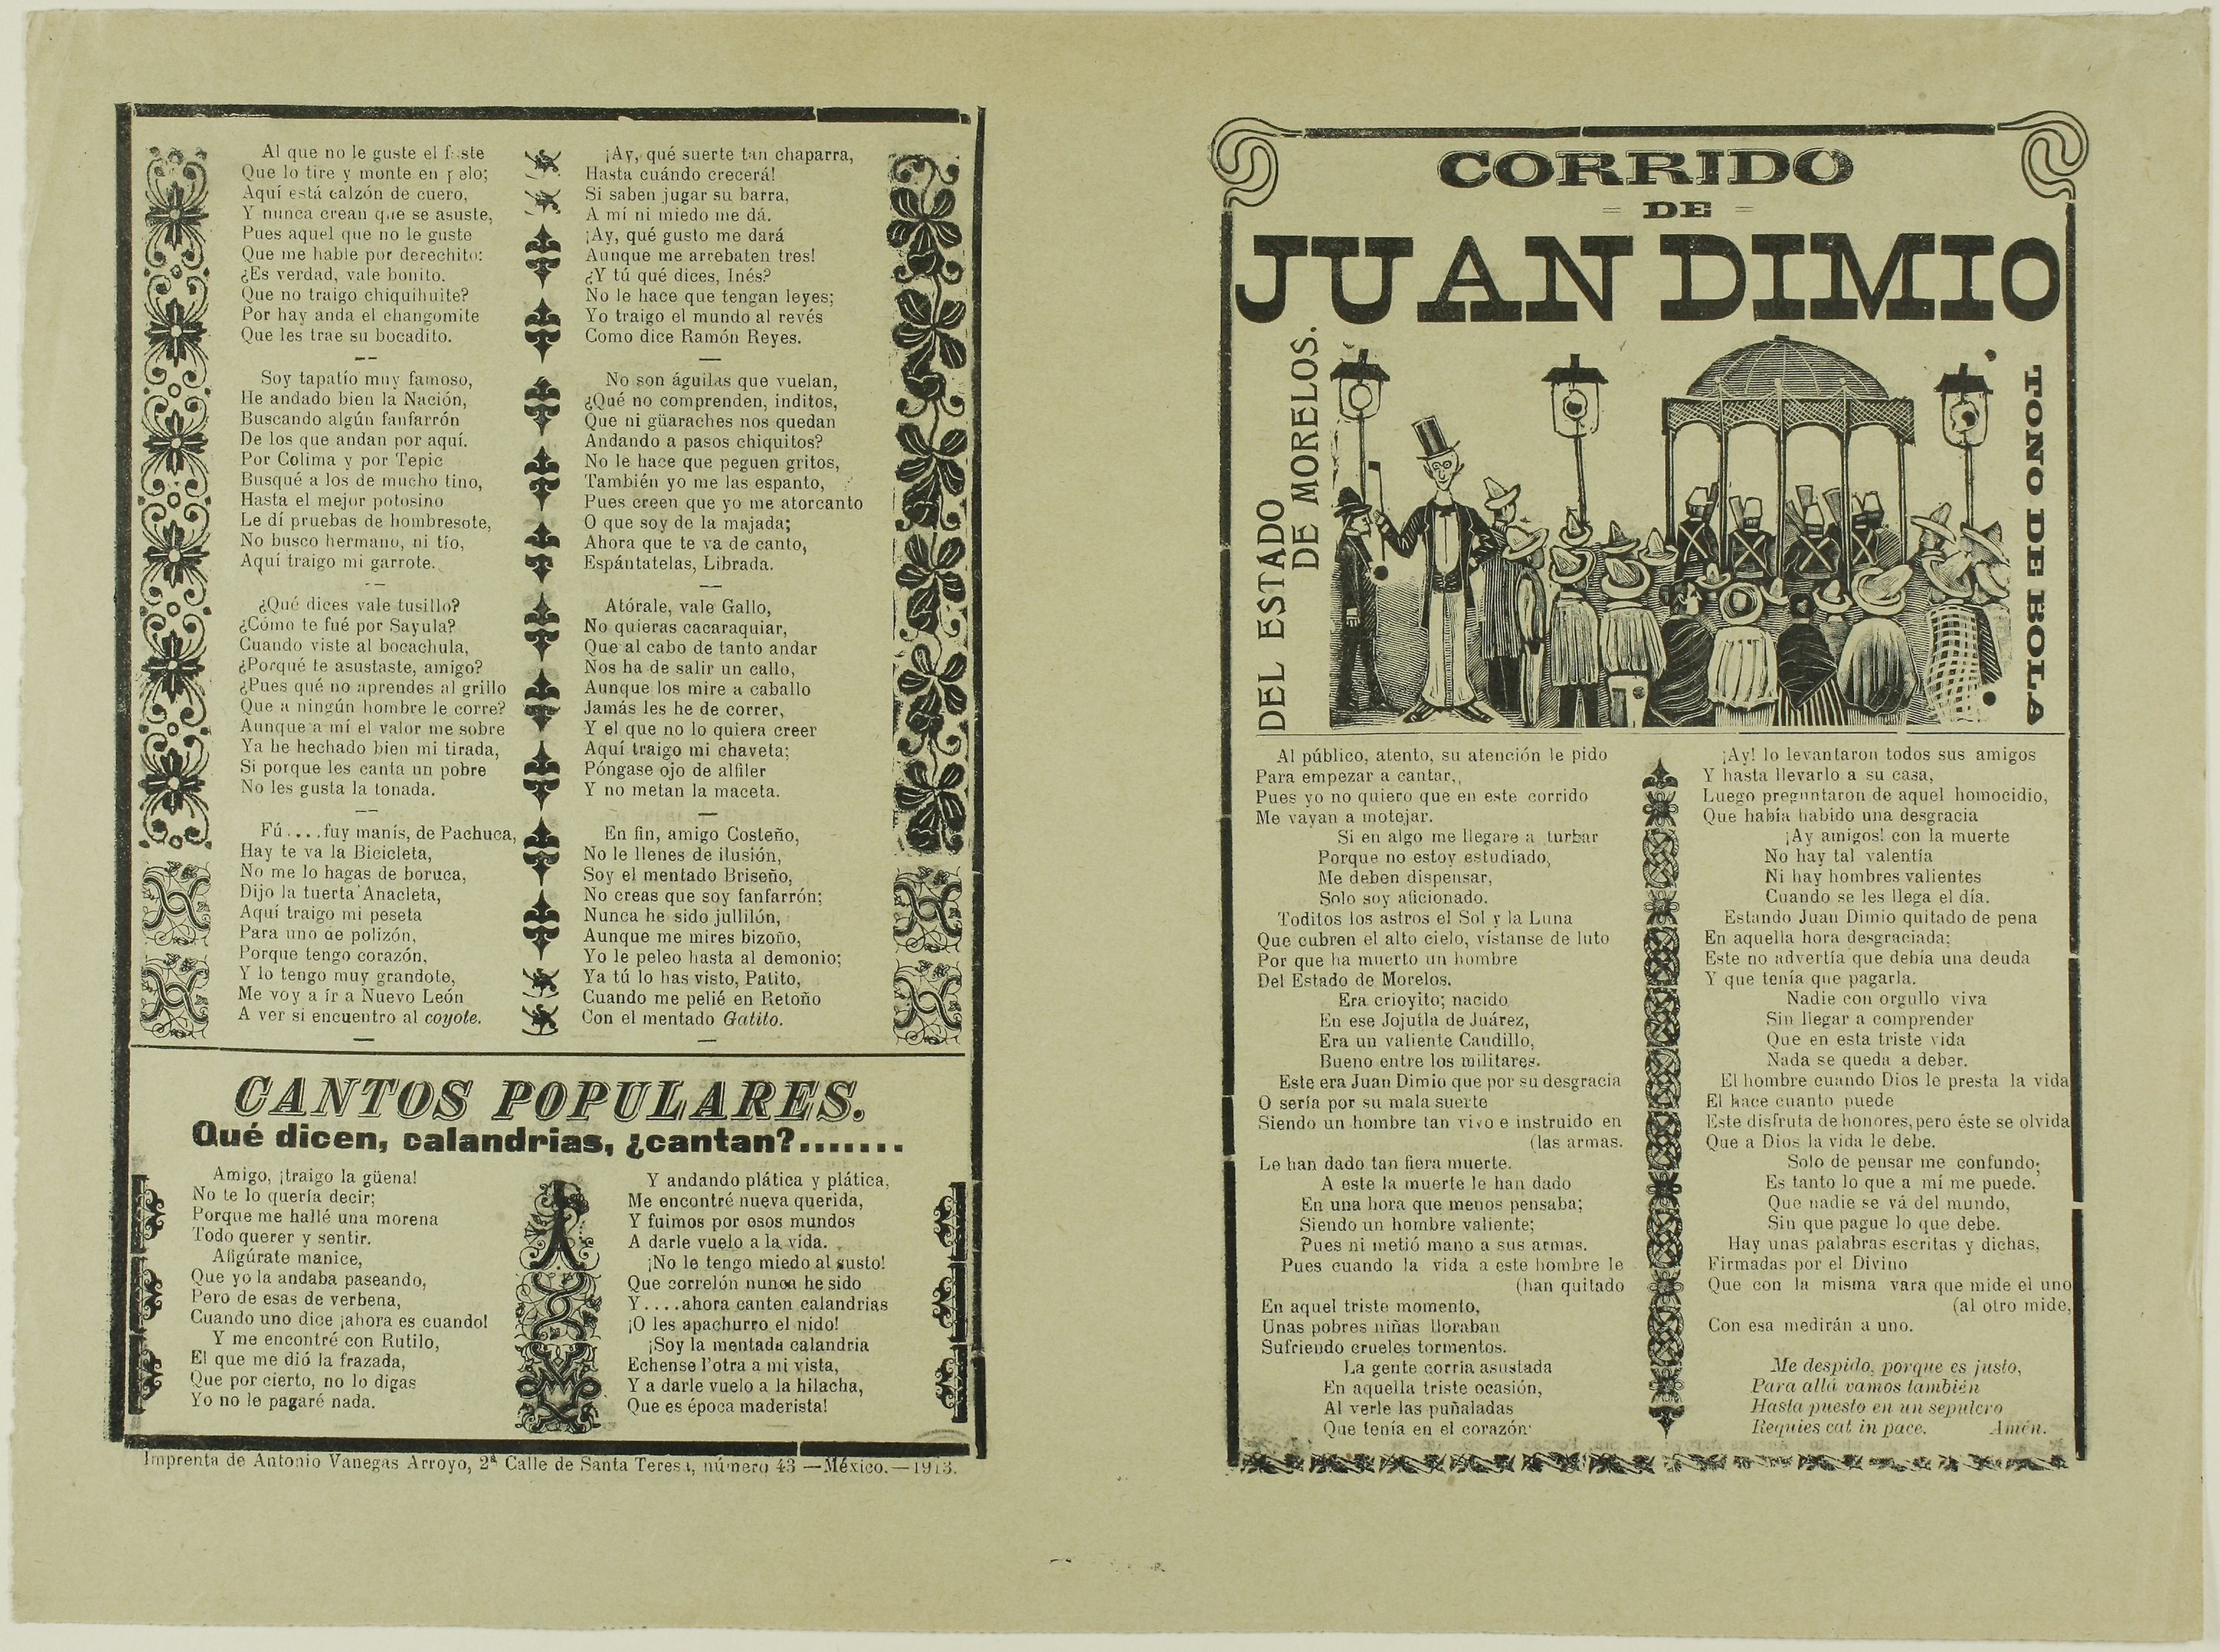 Al que no le guste el fuste
Que lo tire y monte en pelo;
Aquí está calzón de cuero,
Y nunca crean que se asuste,
Pues aquel que no le guste
Que me hable por derechito:
¿Es verdad, vale bonito.
Que no traigo chiquihuite?
Por hay anda el changomite
Que les trae su bocadito.
Soy tapatío muy famoso,
He andado bien la Nación,
Buscando algún fanfarrón
De los que andan por aquí.
Por Colima y por Tepic
Busqué a los de mucho tino,
Hasta el mejor potosino
Le dí pruebas de hombresote,
No busco hermano, ni tío,
Aquí traigo mi garrote.
¿Qué dices vale tusillo?
¿Cómo te fué por Sayula?
Cuando viste al bocachula,
¿Porqué te asustaste, amigo?
¿Pues qué no aprendes al grillo
Que a ningún hombre le corre?
Aunque a mí el valor me sobre
Ya he hechado bien mi tirada,
Si porque les canta un pobre
No les gusta la tonada.
Fú....fuy manís, de Pachuca,
Hay te va la Bicicleta,
No me lo hagas de boruca,
Dijo la tuerta Anacleta,
Aquí traigo mi peseta
Para uno de polizón,
Porque tengo corazón,
Y lo tengo muy grandote,
Me voy a ír a Nuevo León
A ver si encuentro al coyote.
¡Ay, qué suerte tan chaparra,
Hasta cuándo crecerá!
Si saben jugar su barra,
A mí ni miedo me dá.
¡Ay, qué gusto me dará
Aunque me arrebaten tres!
¿Y tú qué dices, Inés?
No le hace que tengan leyes;
Yo traigo el mundo al revés
Como dice Ramón Reyes.
No son águilas que vuelan,
¿Qué no comprenden, inditos,
Que ni güaraches nos quedan
Andando a pasos chiquitos?
No le hace que peguen gritos,
También yo me las espanto,
Pues creen que yo me atorcanto
O que soy de la majada;
Ahora que te va de canto,
Espántatelas, Librada.
Atórale, vale Gallo,
No quieras cacaraquiar,
Que al cabo de tanto andar
Nos ha de salir un callo,
Aunque los mire a caballo
Jamás les he de correr,
Y el que no lo quiera creer
Aquí traigo mi chaveta;
Póngase ojo de alfiler
Y no metan la maceta.
En fin, amigo Costeño,
No le llenes de ilusión,
Soy el mentado Briseño,
No creas que soy fanfarrón;
Nunca he sido jullilón,
Aunque me mires bizoño,
Yo le peleo hasta al demonio;
Ya tú lo has visto, Patito,
Cuando me pelié en Retoño
Con el mentado Gatito.
CANTOS POPULARES.
Qué dicen, calandrias, ¿cantan?.......
Amigo, ¡traigo la güena!
No te lo quería decir;
Porque me hallé una morena
Todo querer y sentir.
Afigúrate manice,
Que yo la andaba paseando,
Pero de esas de verbena,
Cuando uno dice ¡ahora es cuando!
Y me encontré con Rutilo,
El que me dió la frazada,
Que por cierto, no lo digas
Yo no le pagaré nada.
Y andando plática y plática,
Me encontré nueva querida,
Y fuimos por esos mundos
A darle vuelo a la vida.
¡No le tengo miedo al susto!
Que correlón nunca he sido
Y....ahora canten calandrias
¡O les apachurro el nido!
¡Soy la mentada calandria
Echense l'otra a mi vista,
Y a darle vuelo a la hilacha,
Que es época maderista!
Imprenta de Antonio Vanegas Arroyo, 2ª Calle de Santa Teresa, número 43 —México.—1913.
CORRIDO
DE
JUAN DIMIO
DEL ESTADO
DE MORELOS.
TONO DE BOLA
Al público, atento, su atención le pido
Para empezar a cantar,
Pues yo no quiero que en este corrido
Me vayan a motejar.
Si en algo me llegare a turbar
Porque no estoy estudiado,
Me deben dispensar,
Solo soy aficionado.
Toditos los astros el Sol y la Luna
Que cubren el alto cielo, vístanse de luto
Por que ha muerto un hombre
Del Estado de Morelos.
Era crioyito; nacido
En ese Jojutla de Juárez,
Era un valiente Caudillo,
Bueno entre los militares.
Este era Juan Dimio que por su desgracia
O sería por su mala suerte
Siendo un hombre tan vivo e instruido en
(las armas.
Le han dado tan fiera muerte.
A este la muerte le han dado
En una hora que menos pensaba;
Siendo un hombre valiente;
Pues ni metió mano a sus armas.
Pues cuando la vida a este hombre le
(han quitado
En aquel triste momento,
Unas pobres niñas lloraban
Sufriendo crueles tormentos.
La gente corría asustada
En aquella triste ocasión,
Al verle las puñaladas
Que tenía en el corazón
¡Ay! lo levantaron todos sus amigos
Y hasta llevarlo a su casa,
Luego preguntaron de aquel homocidio,
Que había habido una desgracia
¡Ay amigos! con la muerte
No hay tal valentía
Ni hay hombres valientes
Cuando se les llega el día.
Estando Juan Dimio quitado de pena
En aquella hora desgraciada;
Este no advertía que debía una deuda
Y que tenía que pagarla.
Nadie con orgullo viva
Sin llegar a comprender
Que en esta triste vida
Nada se queda a deber.
El hombre cuando Dios le presta la vida
El hace cuanto puede
Este disfruta de honores, pero éste se olvida
Que a Dios la vida le debe.
Solo de pensar me confundo;
Es tanto lo que a mí me puede.
Que nadie se vá del mundo,
Sin que pague lo que debe.
Hay unas palabras escritas y dichas,
Firmadas por el Divino
Que con la misma vara que mide el uno
(al otro mide,
Con esa medirán a uno.
Me despido, porque es justo,
Para allá vamos también
Hasta puesto en un sepulcro
Requies cat in pace. Amén.